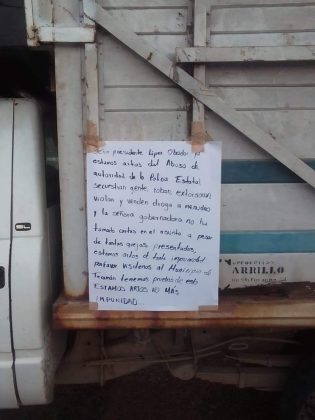 presidente López Obrador ya
estamos artos del Abuso de
autoridad de la Policia Estatal
secuestran gente, roban, extorsionan
violan y venden droga a menudeo
y la señora gobernadora no ha
tomado cartas en el asunto a pesar
de tantas quejas presentadas,
estamos artos de tanta impunidad
porfavor visitenos al Municipio de
Tecamán tenemos pruebas de esto
ESTAMOS ARTOS NO MÁS
IMPUNIDAD
ARRILLO